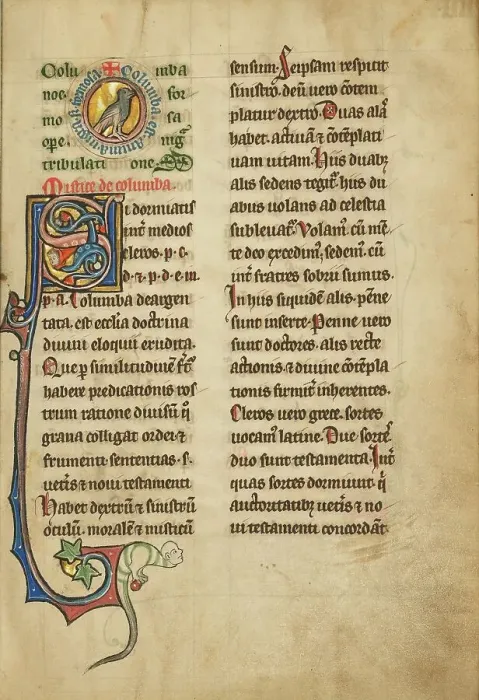 Colu mba
noc. for
mo sa
ope. nig̃
tribulati one.
✠ Columba est anima nigra s; formosa
Mistice de columba.
Si dormiatis
int̃ medios
cleros. p. c.
d. ⁊ p. d. e. in.
p. a. Columba deargen
tata. est ecclia doctrina
diuini eloqui erudita.
Que ꝑ similitudinẽ
habere predicationis ros
trum ratione diuisũ q̃
grana colligat ordei ⁊
frumenti sententias. s.
uetĩs ⁊ noui testamenti
Habet dextrũ ⁊ sinistrũ
oculũ. moralẽ ⁊ misticũ
sensum. Seipsam respicit
sinistro. deũ uero cõtem
platur dextro. Duas alã
habet. actiuã ⁊ cõtẽplati
uam uitam. Hiis duabꝫ
alis sedens tegit̃. hiis du
abus uolans ad celestia
subleuat̃. Volam᷒ cũ mẽ
te deo excedim᷒. sedem᷒. cũ
int̃ fratres sobrii sumus.
In hiis siquidẽ alis. pẽne
sunt inserte. Penne uero
sunt doctores. alis recte
actionis ⁊ diuine cõtẽpla
tionis firmit̃ inherentes.
Cleros uero grece. sortes
uocam᷒ latine. Due sortẽ.
duo sunt testamenta. Int̃
quas sortes dormiunt. q̃
auctoritatibꝫ uetĩs ⁊ no
ui testamenti concordãt.